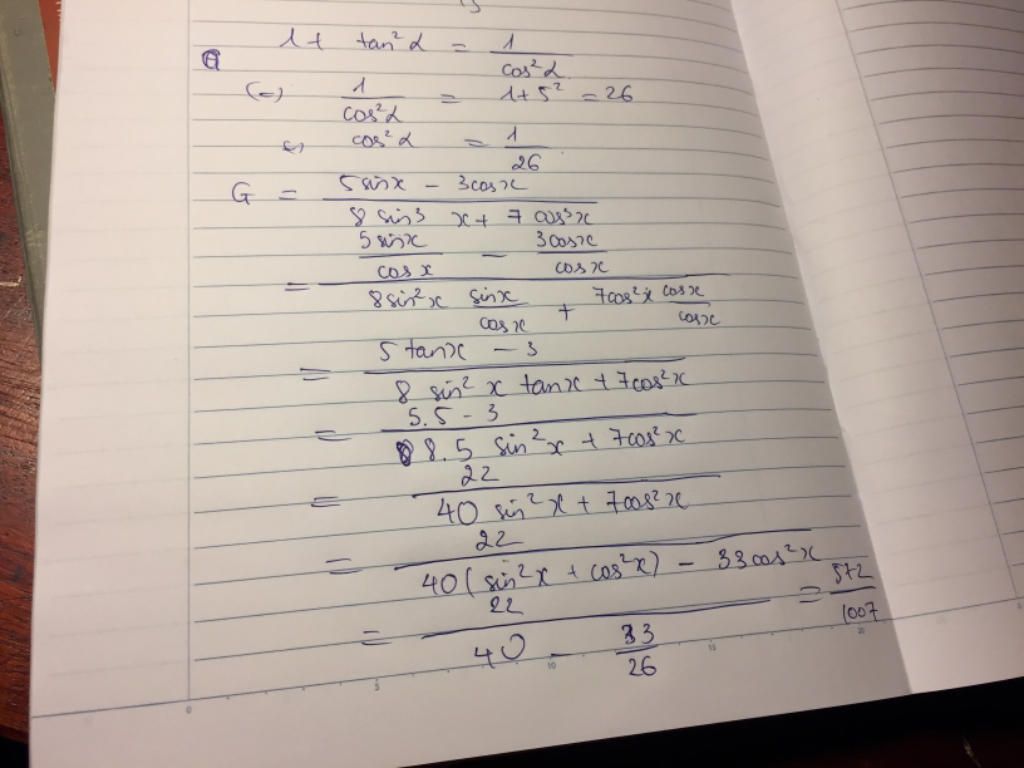 1 + tan²α = 1/cos²α
(=) 1/cos²α = 1+5² = 26
(=) cos²α = 1/26
G = (5sinx - 3cosx)/(8 sin³ x + 7 cos³x)
= (5sinx/cosx - 3cosx/cosx)/(8sin²x sinx/cosx + 7cos²x cosx/cosx)
= (5 tanx - 3)/(8 sin² x tanx + 7cos²x)
= (5.5 - 3)/(8.5 sin²x + 7cos²x)
= 22/(40 sin²x + 7cos²x)
= 22/(40(sin²x + cos²x) - 33cos²x)
= 22/(40 - 33/26) = 572/1007
0 5 10 15 20